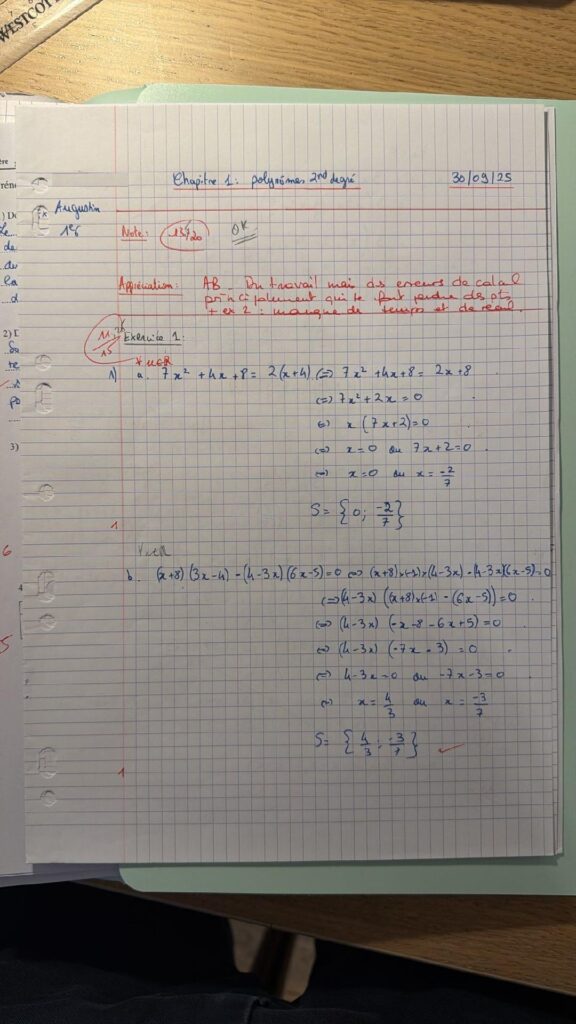 WESTCOTT
Chapitre 1: polynômes 2nd degré 30/09/25
Augustin
1G
Note: 13/20 OK
Appréciation: AB - Du travail mais des erreurs de calcul
principalement qui te font perdre des pts
+ ex 2 : manque de temps et de recul.
11,25/15 Exercice 1:
* x∈ℝ
1) a. 7x² + 4x + 8 = 2(x+4) (=) 7x² + 4x + 8 = 2x + 8
(=) 7x² + 2x = 0
(=) x (7x+2) = 0
(=) x = 0 ou 7x+2 = 0
(=) x = 0 ou x = -2/7
S = { 0 ; -2/7 }
1
∀x∈ℝ
b. (x+8)(3x-4) - (4-3x)(6x-5) = 0 (=) (x+8)×(-1)×(4-3x) - (4-3x)(6x-5) = 0
(=) (4-3x) ((x+8)×(-1) - (6x-5)) = 0
(=) (4-3x) (-x-8-6x+5) = 0
(=) (4-3x) (-7x-3) = 0
(=) 4-3x = 0 ou -7x-3 = 0
(=) x = 4/3 ou x = -3/7
S = { 4/3 ; -3/7 }
1
2)
3)
6
5